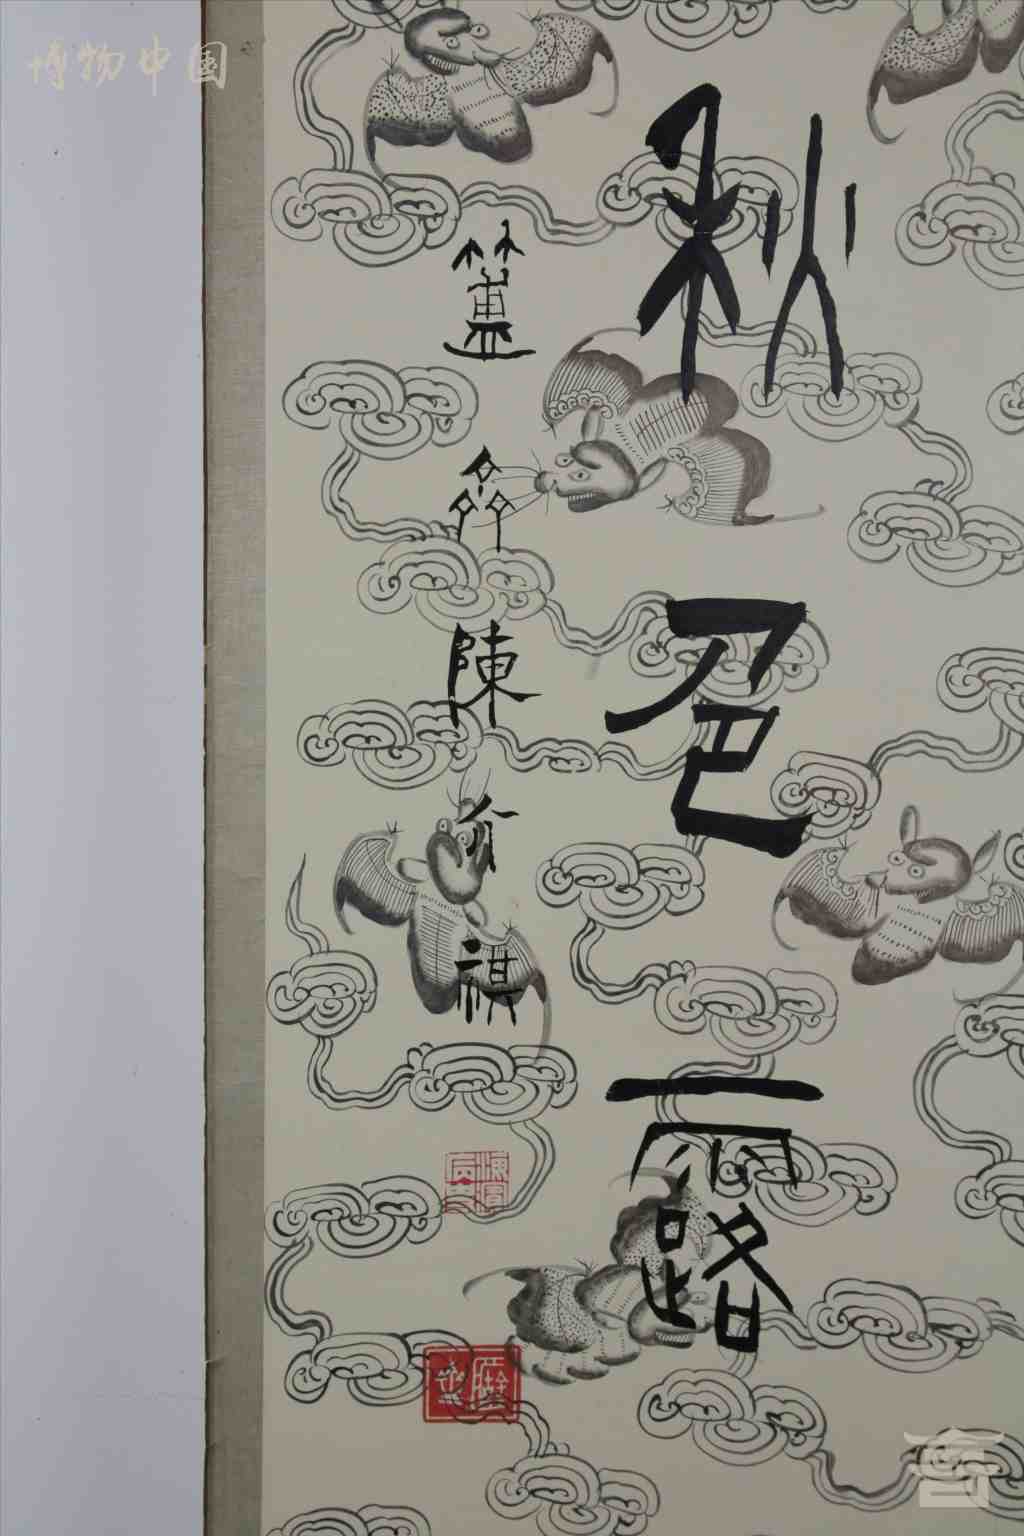 博物中国
秋色露
簠齋陳介祺